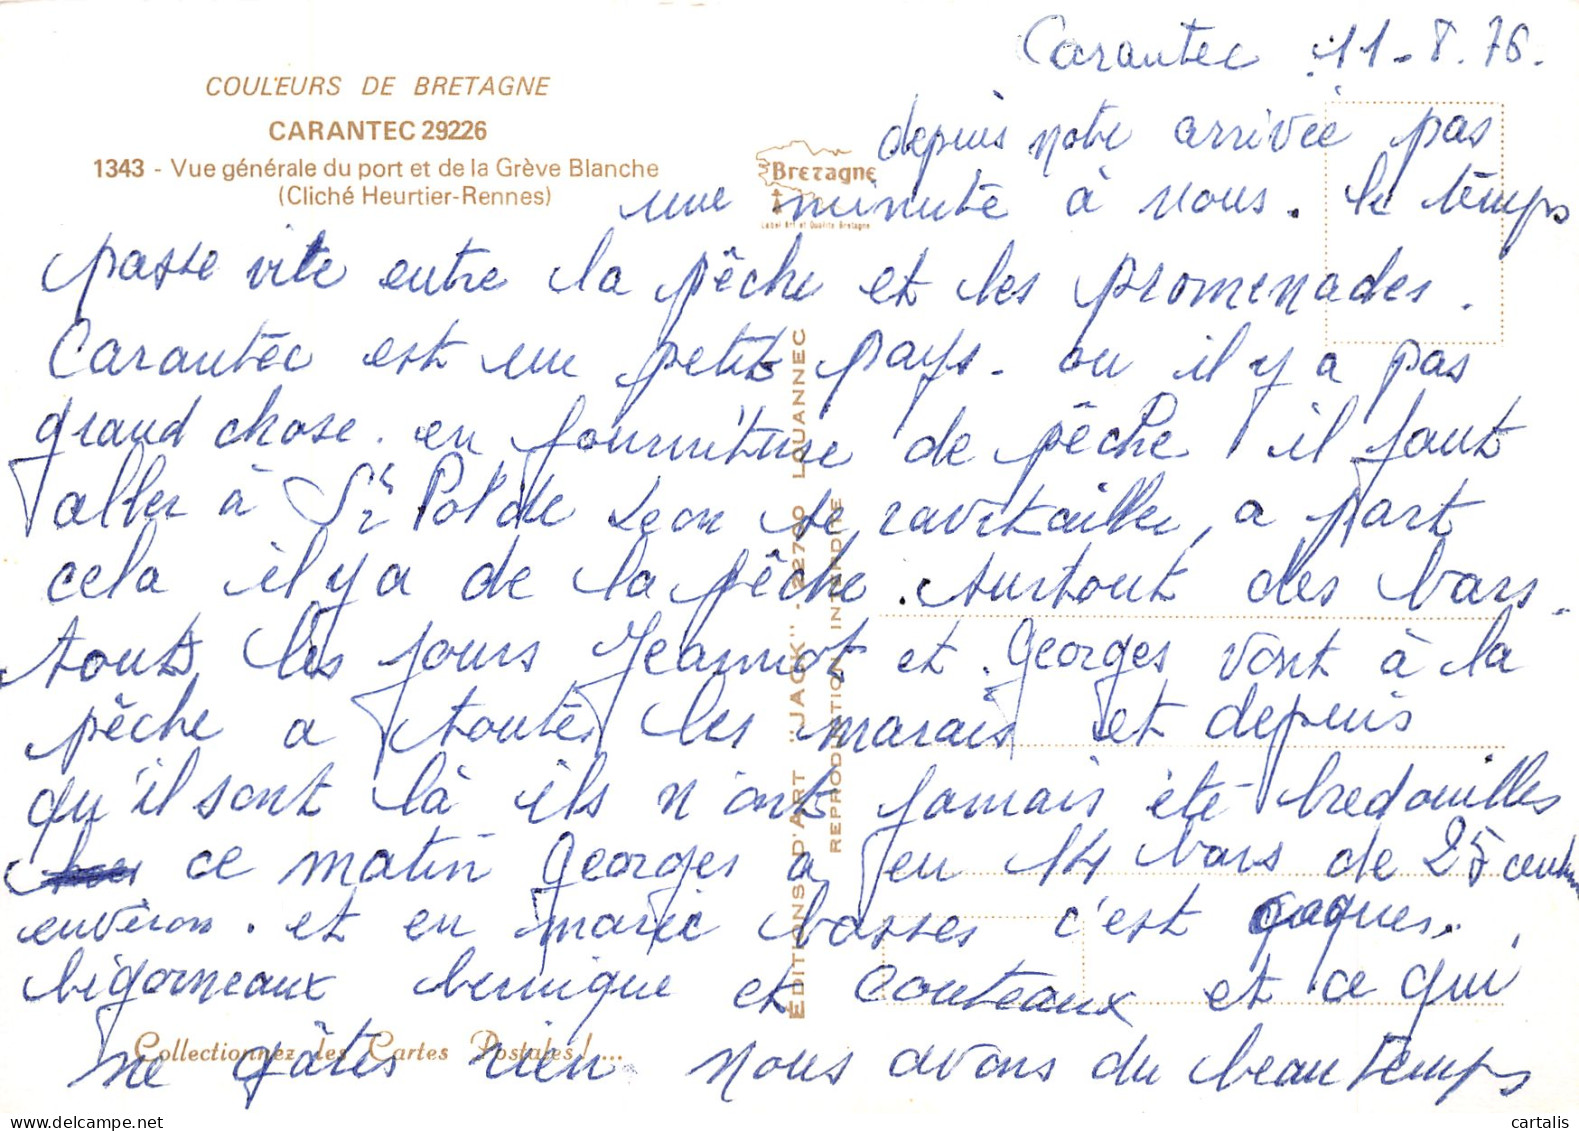 COULEURS DE BRETAGNE
CARANTEC 29226
1343 - Vue générale du port et de la Grève Blanche
(Cliché Heurtier-Rennes)
Bretagne
Label Art et Qualité Bretagne
Carantec 11-8.76.
depuis notre arrivée pas
une minute à nous. le temps
passe vite entre la pêche et les promenades.
Carantéc est un petit pays. ou il y a pas
grand chose. en fourniture de pêche il faut
aller à St Pol de Leon se ravitailler, a part
cela il y a de la pêche. surtout des bars.
touts les jours Jeannot et Georges vont à la
pêche a toutes les marais et depuis
qu'il sont là ils n'ont jamais été bredouilles
ce matin Georges a eu 14 bars de 25 centim
environ. et en mareé basses c'est coques,
bigorneaux bernique et couteaux et ce qui
ne gâtes rien nous avons du beau temps
Collectionnez les Cartes Postales !...
ÉDITIONS D'ART "JACK" - 22700 LOUANNEC
REPRODUCTION INTERDITE
cartalis
delcampe.net